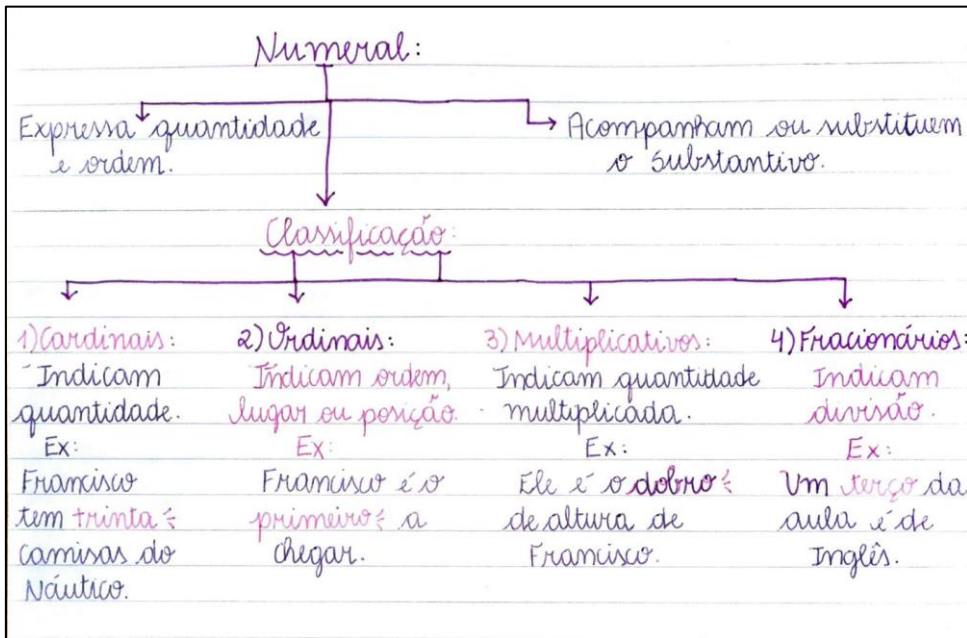 Numeral:
Expressa quantidade
e ordem.
Acompanham ou substituem
o substantivo.
Classificação:
1) Cardinais:
Indicam
quantidade.
Ex:
Francisco
tem trinta
camisas do
Náutico.
2) Ordinais:
Indicam ordem,
lugar ou posição.
Ex:
Francisco é o
primeiro a
chegar.
3) Multiplicativos:
Indicam quantidade
multiplicada.
Ex:
Ele é o dobro
de altura de
Francisco.
4) Fracionários:
Indicam
divisão.
Ex:
Um terço da
aula é de
Inglês.